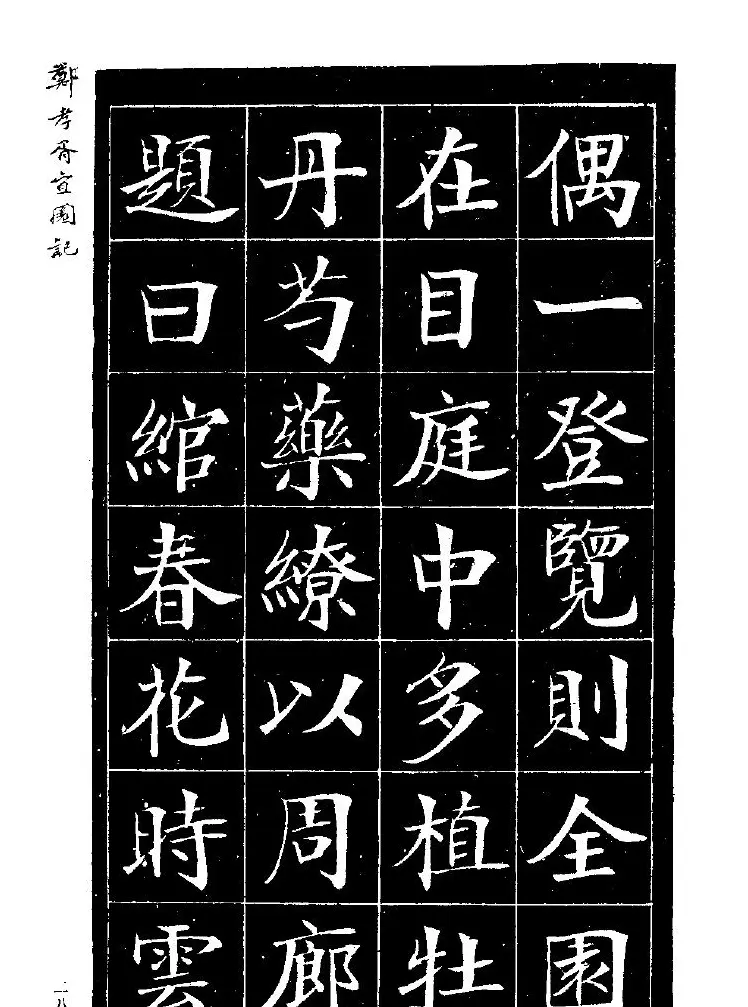 偶一登覽則全園
在目庭中多植牡
丹芍藥繚以周廊
題曰綰春花時雲
鄭孝胥宣園記
二八